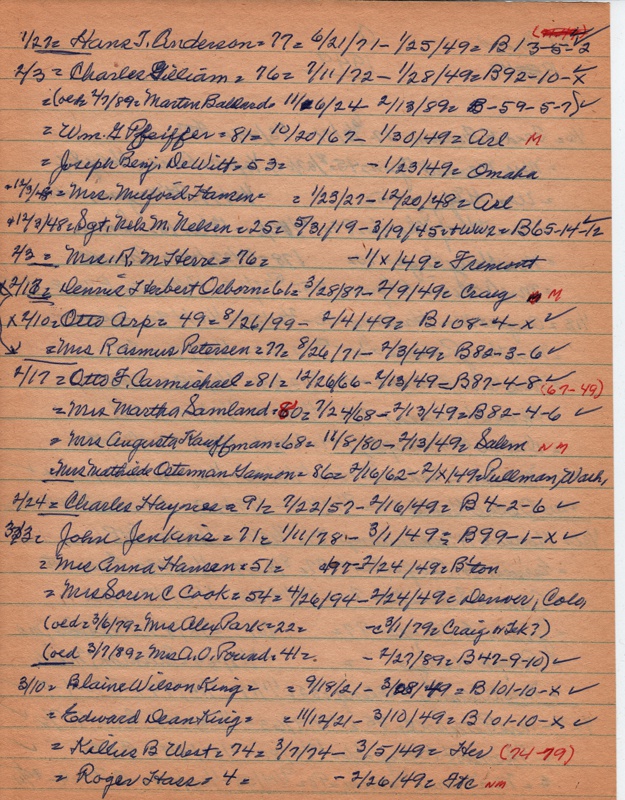 1/27= Hans T. Anderson=77= 6/21/71- 1/25/49= B13-5-2 ✓
2/3= Charles Gilliam= 76= 7/11/72- 1/28/49=B92-10-x ✓
=(oed 2/7/89=Martin Ballard= 11/6/24 2/13/89= B-59-5-7) ✓
= Wm. G Pfeiffer=81= 10/20/67- 1/30/49= Arl M
= Joseph Benj. DeWitt=53= -1/23/49= Omaha
Mrs. Milford Hansen= =1/23/27-12/20/48= Arl
*12/3/48=Sgt. Nels M. Nelsen=25= 5/31/19-3/19/45=+WW2=B65-14-12 ✓
2/3= Mrs. R. M Herre=76= -1/x/49= Fremont
Dennis Herbert Osborn=61= 3/28/87-2/9/49= Craig M
x 2/10=Otto Arp= 49=8/26/99- 2/4/49= B108-4-x ✓
=Mrs Rasmus Petersen=77= 8/26/71-2/3/49= B82-3-6 ✓
2/17=Otto F. Carmichael=81= 12/26/66-2/13/49=B87-4-8 ✓ (67-49)
=Mrs Martha Samland=80=7/24/68-2/13/49=B82-4-6 ✓
=Mrs Augusta Kauffman=68= 11/8/80-2/13/49= Salem NM
Mrs Mathilde Osterman Gannon=86=2/16/62-2/x/49=Pullman, Wash,
2/24= Charles Haynes=91= 7/22/57-2/16/49= B4-2-6 ✓
John Jenkins=71=1/11/78- 3/1/49= B99-1-x ✓
= Mrs Anna Hansen=51= 97-2/24/49= B'ton
=Mrs Soren C Cook=54=4/26/94-2/24/49= Denver, Colo,
(oed=3/6/79=Mrs Alex Park=22= -c3/1/79= Craig or Tek?)
(oed 3/7/89=Mrs A. O. Pound=41=. -2/27/89=B47-9-10) ✓
3/10= Blaine Wilson King= = 9/18/21- 3/8/49=B101-10-x ✓
=Edward Dean King= =11/12/21- 3/10/49= B101-10-x ✓
= Killis B West=74= 3/7/74- 3/5/49= Her (74-79)
= Roger Hass= 4= -2/26/49= Ftc NM